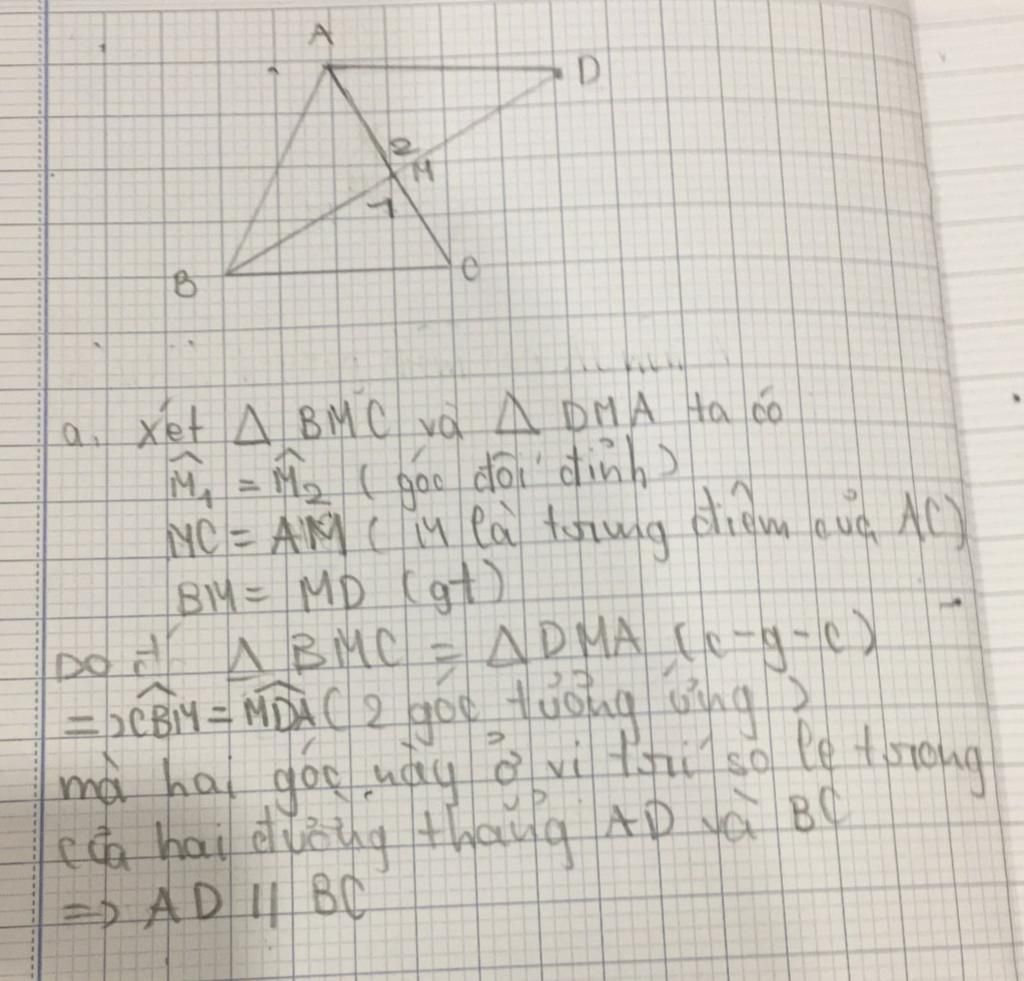 A
D
2
M
1
B
C
a. Xét Δ BMC và Δ DMA ta có
M̂₁ = M̂₂ (góc đối đỉnh)
MC = AM ( M là trung điểm của AC)
BM = MD (gt)
Do đó Δ BMC = Δ DMA (c-g-c)
=> CBM̂ = MDÂ ( 2 góc tương ứng )
mà hai góc này ở vị trí so le trong
của hai đường thẳng AD và BC
=> AD // BC